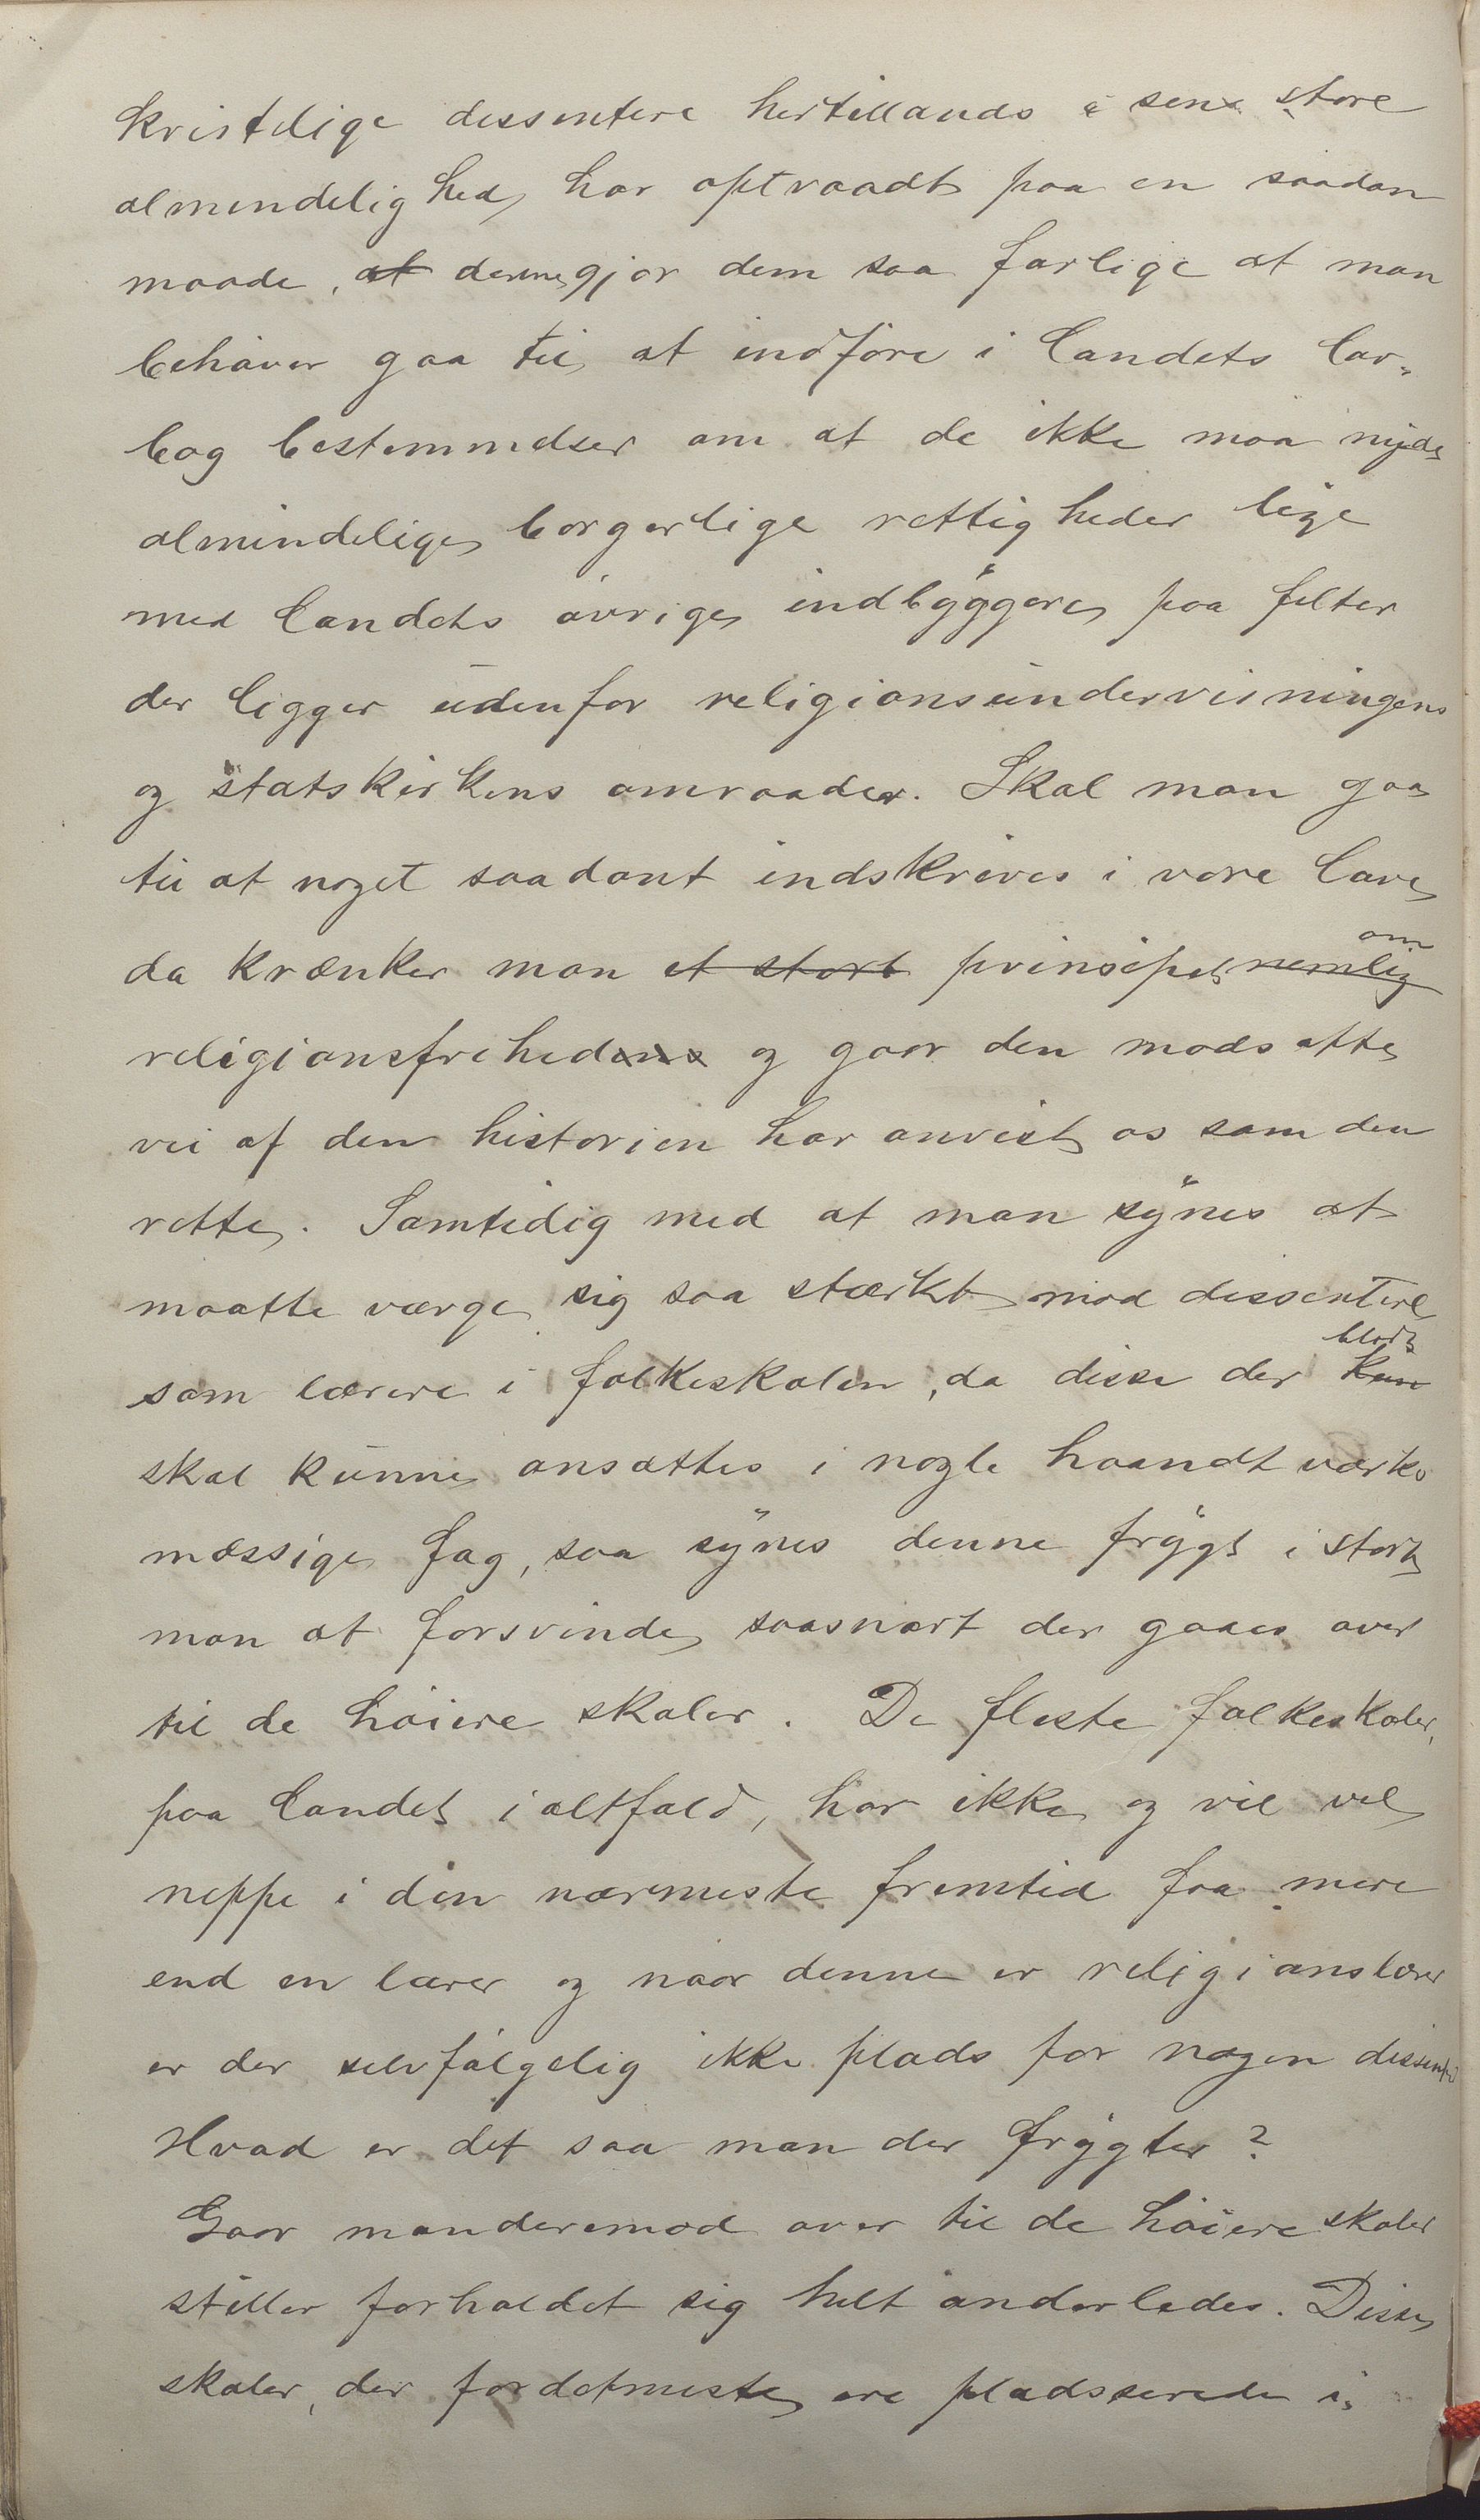 kristelige dissentere hertillands i sin store
almindelighed, har optraadt paa en saadan
maade, at denne gjør dem saa farlige at man
behøver gaa til at indføre i landets lov-
bog bestemmelser om at de ikke maa nyde
almindelige borgerlige rettigheder lige
med landets øvrige indbyggere paa felter
der ligger udenfor religionsundervisningens
og statskirkens omraader. Skal man gaa
til at noget saadant indskrives i vore love
da krænker man et stort prinsipet nemlig om
religionsfriheden og gaar den modsatte
vei af den historien har anvist os som den
rette. Samtidig med at man synes at
maatte værge sig saa stærkt mod dissentere
som lærere i folkeskolen, da disse der kun blot
skal kunne ansættes i nogle haandtverks
mæssige fag, saa synes denne frygt i stort
mon at forsvinde, saasnart der gaaes over
til de høiere skoler. De fleste folkeskoler,
paa landet ialtfald, har ikke og vil vel
neppe i den nærmeste fremtid faa mere
end en lærer og naar denne er religionslærer
er der selvfølgelig ikke plads for nogen dissenter
Hvad er det saa man der frygter?
Gaar manderemod over til de høiere skoler
stiller forholdet sig helt anderledes. Disse
skoler, der fordetmeste ere pladsserede i